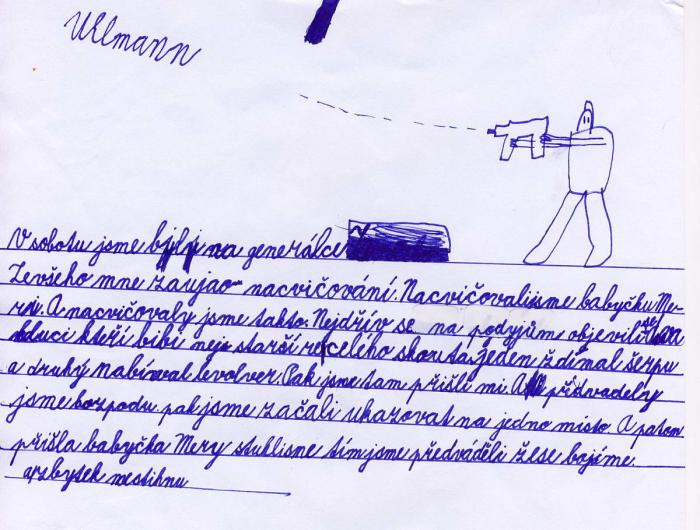 Ullmann
V sobotu jsme byly na generálce
Zevšeho mne zaujao nacvičování. Nacvičovali jsme babyčku Me-
ry. A nacvičovaly jsme takto. Nejdřív se na podyjům objevili
kluci kteří bibí nej starší ze celého skouta. Jeden ždímal šerpu
a druhý nabíwal levolver. Pak jsme tam přišli mi. A přdvadely
jsme hozpodu. pak jsme začali ukazovat na jedno místo. A patom
přišla babyčka Mery stuklisne tím jsme předváděli žese bojíme.
azbytek nestihnu